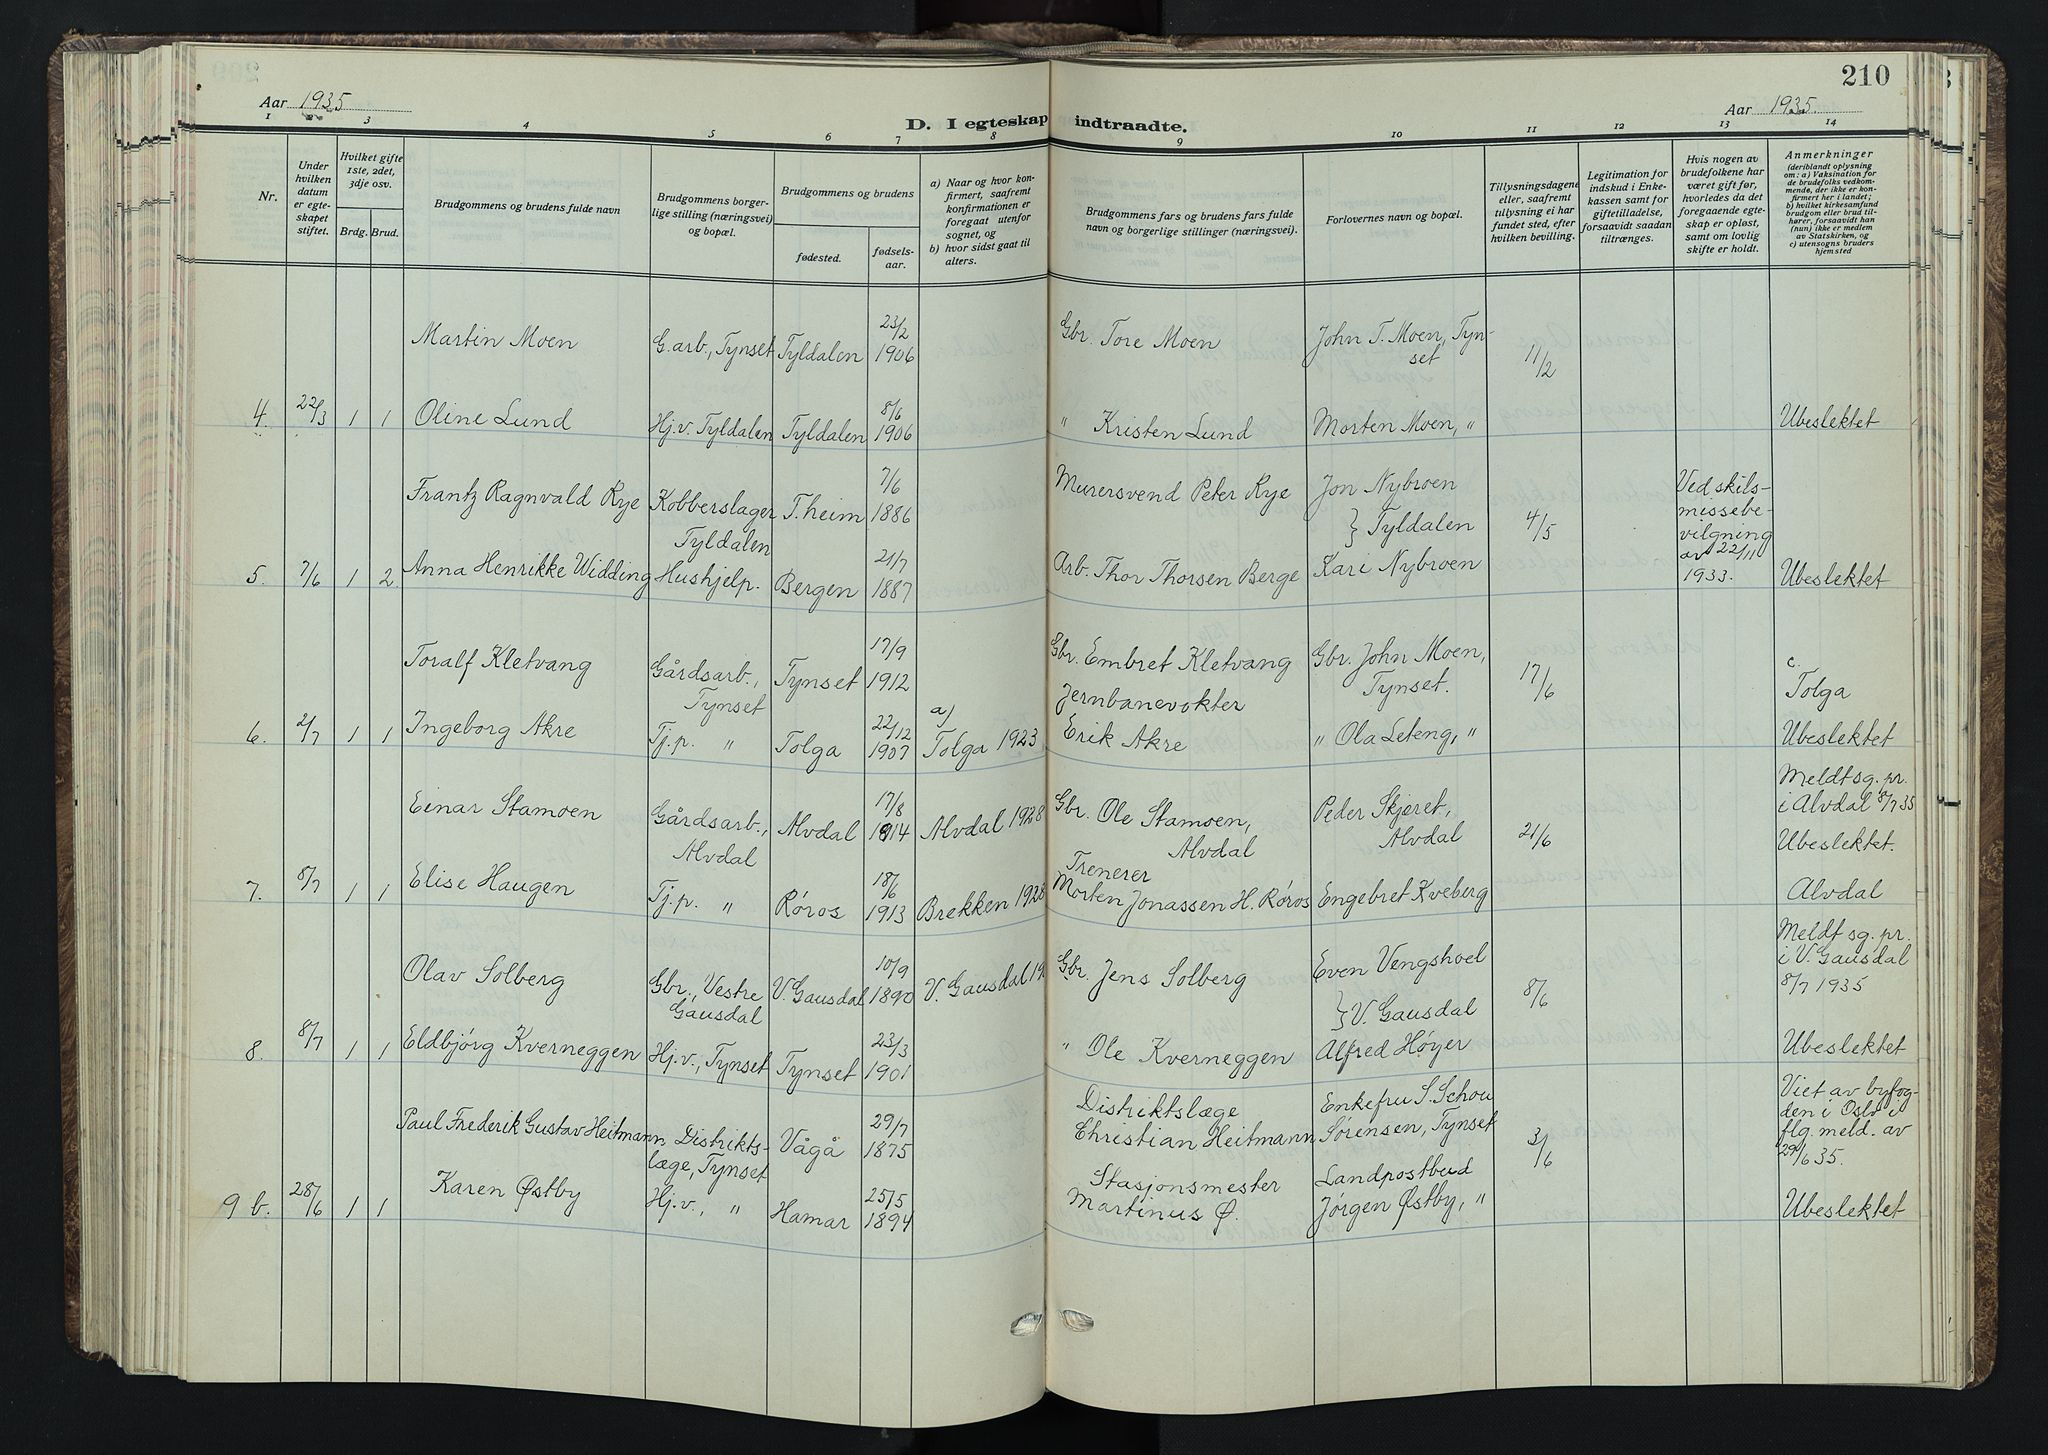 210
Aar 1935
Aar 1935.
D. I egteskap indtraadte.
1 2 3 4 5 6 7 8 9 10 11 12 13 14
Nr.
Under hvilken datum er egteskapet stiftet.
Hvilket gifte 1ste, 2det, 3dje osv.
Brdg. Brud.
Brudgommens og brudens fulde navn
Brudgommens borgerlige stilling (næringsvei) og bopæl.
Brudgommens og brudens
fødested.
fødselsaar.
a) Naar og hvor konfirmert, saafremt konfirmationen er foregaat utenfor sognet, og
b) hvor sidst gaat til alters.
Brudgommens fars og brudens fars fulde navn og borgerlige stillinger (næringsvei).
Forlovernes navn og bopæl.
Tillysningsdagene eller, saafremt tillysning ei har fundet sted, efter hvilken bevilling.
Legitimation for indskud i Enkekassen samt for giftetilladelse, forsaavidt saadan tiltrænges.
Hvis nogen av brudefolkene har været gift før, hvorledes da det foregaaende egteskap er opløst, samt om lovlig skifte er holdt.
Anmerkninger
(deriblandt oplysning om: a) Vaksination for de brudefolks vedkommende, der ikke er konfirmert her i landet;
b) hvilket kirkesamfund brudgom eller brud tilhører, forsaavidt han (hun) ikke er medlem av Statskirken, og
c) utensogns bruders hjemsted
Martin Moen G.arb., Tynset Tyldalen 23/2 1906 Gbr. Tore Moen John T. Moen, Tynset 11/2
4. 22/3 1 1 Oline Lund Hj.v. Tyldalen Tyldalen 8/6 1906 " Kristen Lund Morten Moen, " Ubeslektet
Frantz Ragnvald Rye Kobberslager Tyldalen T.heim 7/6 1886 Murersvend Peter Rye Jon Nybroen } Tyldalen 4/5 Ved skilsmissebevilgning av 22/11 1933.
5. 7/6 1 2 Anna Henrikke Widding Hushjelp. Bergen 21/7 1887 Arb. Thor Thorsen Berge Kari Nybroen Ubeslektet
Toralf Kletvang Gårdsarb., Tynset Tynset 17/9 1912 Gbr. Embret Kletvang Gbr. John Moen, Tynset. 17/6 c. Tolga
6. 2/7 1 1 Ingeborg Akre Tj.p. " Tolga 22/12 1907 a) Tolga 1923 Jernbanevokter Erik Akre " Ola Leteng, " Ubeslektet
Einar Stamoen Gårdsarb., Alvdal Alvdal 17/8 1914 Alvdal 1928 Gbr. Ole Stamoen, Alvdal Peder Skjæret, Alvdal 21/6 Meldt sg. pr. i Alvdal 8/7 35 Ubeslektet.
7. 8/7 1 1 Elise Haugen Tj.p. " Røros 18/6 1913 Brekken 1928 Trenerer Morten Jonassen H. Røros Engebret Kveberg Alvdal
Olav Solberg Gbr., Vestre Gausdal V. Gausdal 10/9 1890 V. Gausdal 19 Gbr. Jens Solberg Even Vengshoel } V. Gausdal 8/6 Meldt sg. pr. i V. Gausdal 8/7 1935
8. 8/7 1 1 Eldbjørg Kverneggen Hj.v., Tynset Tynset 23/3 1901 " Ole Kverneggen Alfred Høyer Ubeslektet
Paul Frederik Gustav Heitmann Distriktslæge, Tynset Vågå 29/7 1875 Distriktslæge Christian Heitmann Enkefru S. Schou Sørensen, Tynset 3/6 Viet av byfogden i Oslo i flg. meld. av 29/6 35.
9 b. 28/6 1 1 Karen Østby Hj.v., " Hamar 25/5 1894 Stasjonsmester Martinus Ø. Landpostbud Jørgen Østby, " Ubeslektet